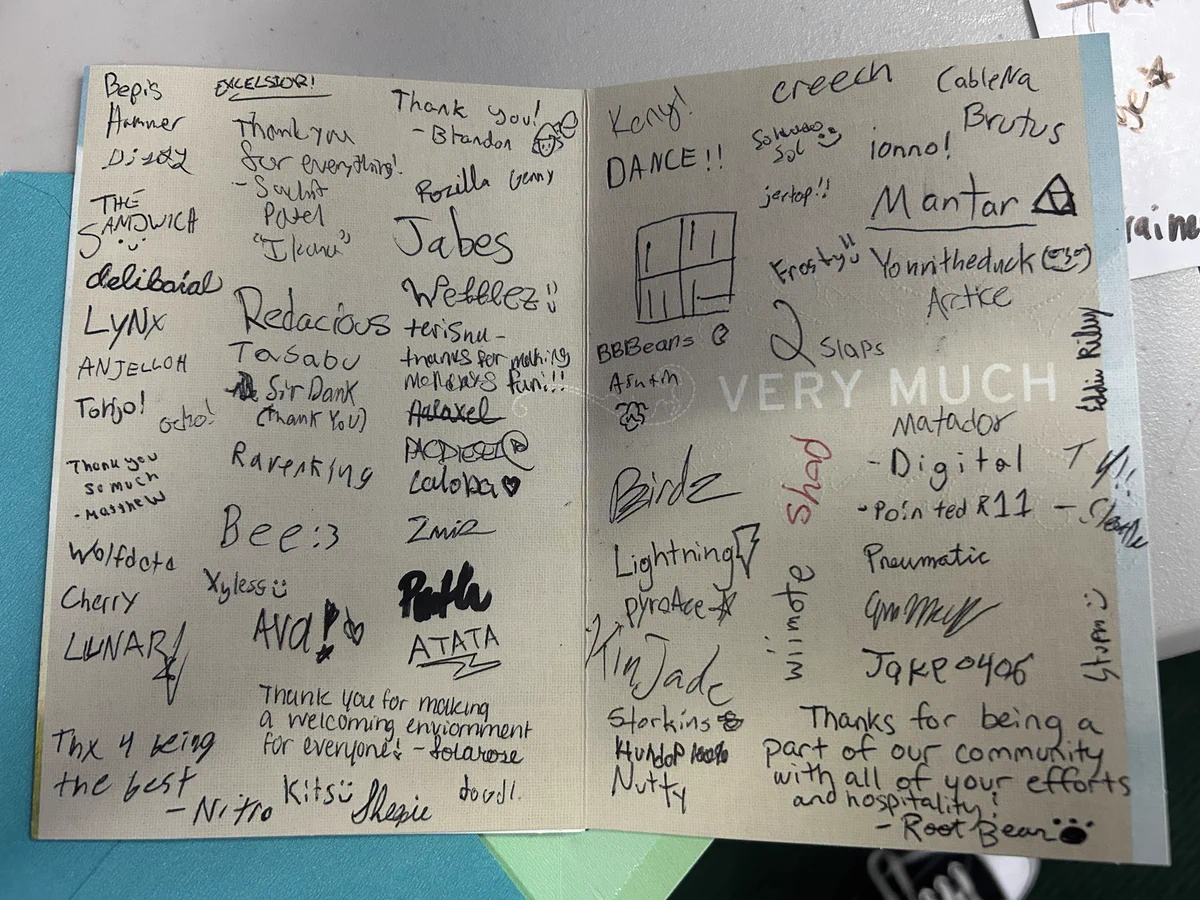 Bepis
Hammer
Dizzy
THE
SANDWICH
delibaial
LYNX
ANJELLOH
Tohjo!
ocho!
Thank you
so much
- Matthew
Wolfdota
Cherry
LUNAR
Thx 4 being
the best
- Nitro
EXCELSIOR!
Thank you
for everything!
Patel
Redacious
Tasabu
Sir Dank
(Thank You)
Ravenking
Bee :3
Xyless
Ava!
Thank you for making
a welcoming enviornment
for everyone! - Solarose
Kits
Shezie
doodl.
Thank you!
- Brandon
Rozilla
Genny
Jabes
Webblez!!
terisnu -
thanks for making
mondays fun!!!
Caloba
Zmiz
ATATA
DANCE!!
BBBeans
Birdz
Lightning
pyroAce
KinJade
Storkins
Nutty
creech
Sol
jertop!!
Frosty!!
Slaps
shap
wiimote
CableNa
Brutus
ionno!
Mantar
Yonnitheduck
Arctice
Eddie Riley
VERY MUCH
Matador
- Digital
- Pointed R11
Pneumatic
Jake0406
Storm
Thanks for being a
part of our community
with all of your efforts
and hospitality!
- Root Bear